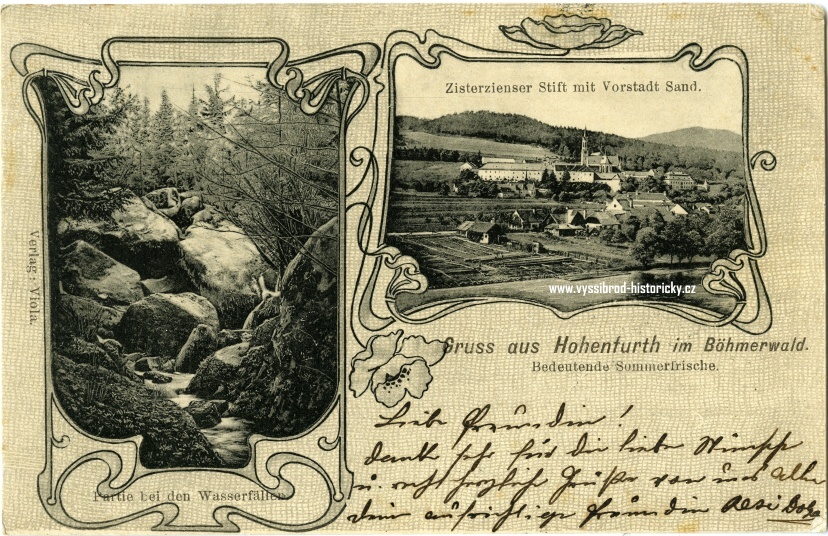 Zisterzienser Stift mit Vorstadt Sand.
www.vyssibrod-historicky.cz
Verlag: Viola.
Gruss aus Hohenfurth im Böhmerwald.
Bedeutende Sommerfrische.
Partie bei den Wasserfällen
Liebe Freundin!
danke sehr für die liebe Wünsche
u. recht herzliche Grüße von uns allen
dein aufrichtige Freundin Resi